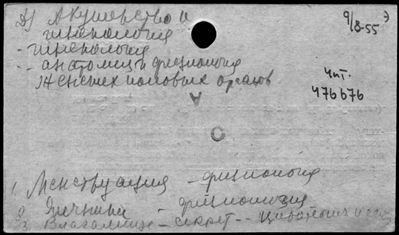 А) Акушерство и
гинекология
9/8-55 э
- гинекология
- анатомия и физиология
женских половых органов
Чит.
476676
А
О
1. Менструация - физиология
2. Яичники - физиология
3. Влагалище - секрет -